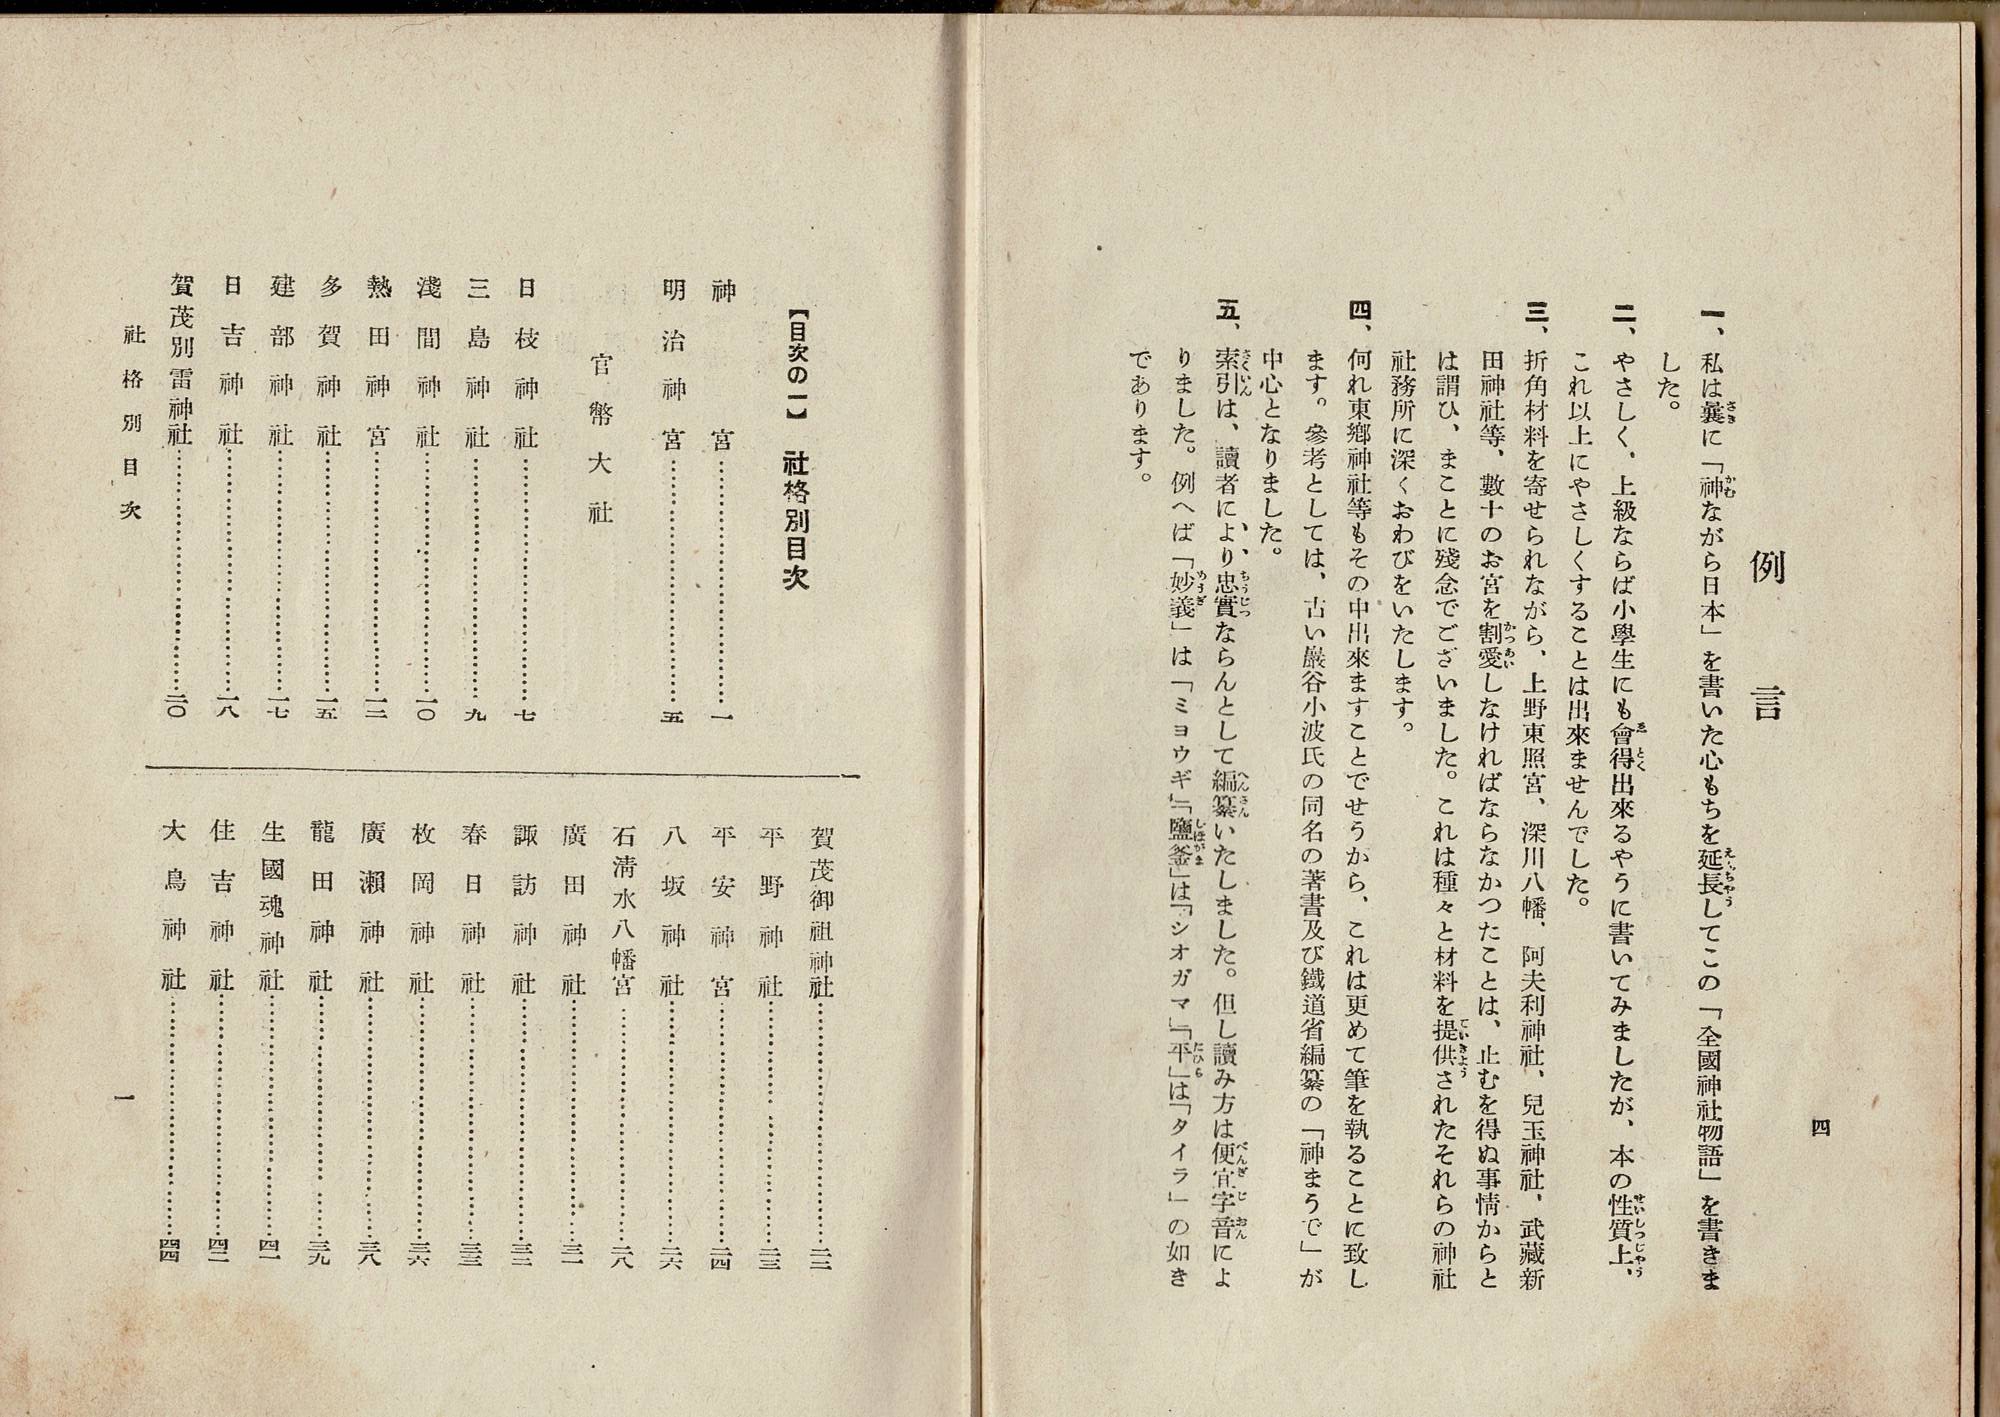 四
例言
一、私は曩に「神ながら日本」を書いた心もちを延長してこの「全國神社物語」を書きま
した。
二、やさしく、上級ならば小學生にも會得出來るやうに書いてみましたが、本の性質上、
これ以上にやさしくすることは出來ませんでした。
三、折角材料を寄せられながら、上野東照宮、深川八幡、阿夫利神社、兒玉神社、武藏新
田神社等、數十のお宮を割愛しなければならなかつたことは、止むを得ぬ事情からと
は謂ひ、まことに殘念でございました。これは種々と材料を提供されたそれらの神社
社務所に深くおわびをいたします。
四、何れ東鄕神社等もその中出來ますことでせうから、これは更めて筆を執ることに致し
ます。參考としては、古い巖谷小波氏の同名の著書及び鐵道省編纂の「神まうで」が
中心となりました。
五、索引は、讀者により忠實ならんとして編纂いたしました。但し讀み方は便宜字音によ
りました。例へば「妙義」は「ミヨウギ」「鹽釜」は「シオガマ」「平」は「タイラ」の如き
であります。
【目次の一】 社格別目次
神宮……一
明治神宮……五
官幣大社
日枝神社……七
三島神社……九
淺間神社……一〇
熱田神宮……一二
多賀神社……一五
建部神社……一七
日吉神社……一八
賀茂別雷神社……二〇
賀茂御祖神社……二二
平野神社……二三
平安神宮……二四
八坂神社……二六
石淸水八幡宮……二八
廣田神社……三一
諏訪神社……三二
春日神社……三三
枚岡神社……三六
廣瀨神社……三八
龍田神社……三九
生國魂神社……四一
住吉神社……四二
大鳥神社……四四
社格別目次
一